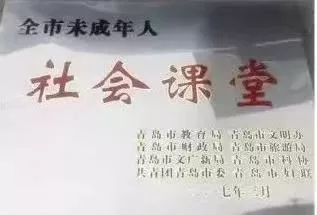 全市未成年人
社会课堂
青岛市教育局 青岛市文明办
青岛市财政局 青岛市旅游局
青岛市文广新局 青岛市科协
共青团青岛市委 青岛市妇联
七年三月